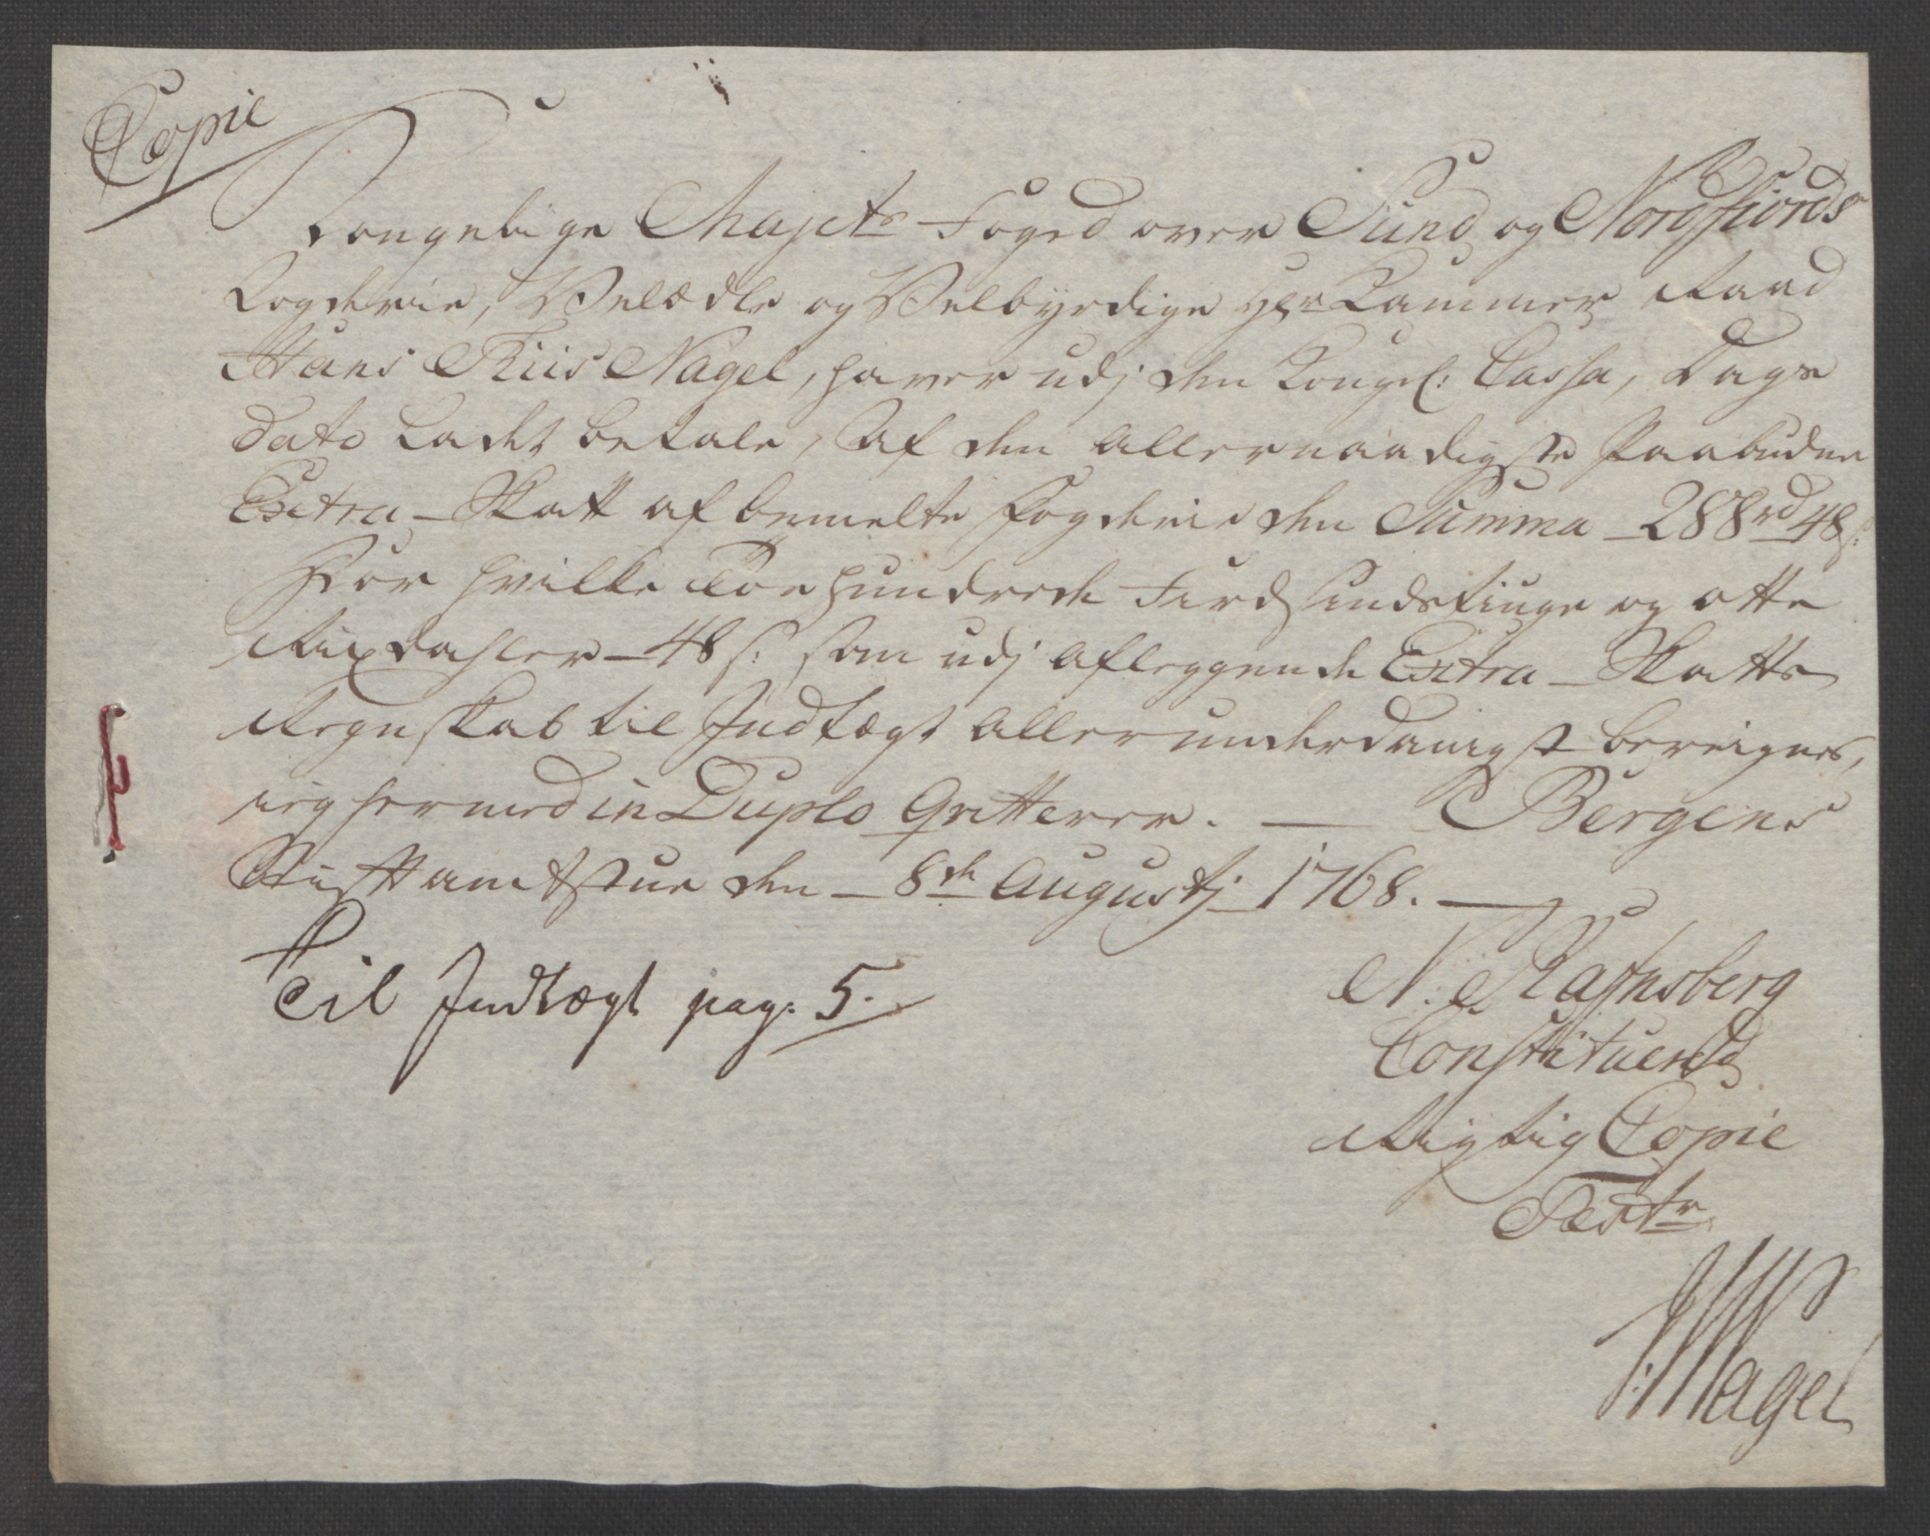 Copie
Kongelige Mayts Foged over Sund og Nordfiords
Fogderie, Velædle og Velbyrdige Hr Kammer Raad
Hans Thiis Nagel, haver udj den Kongel: Cassa, Dags
dato Ladet betale, Af den allernaadigste Paabudne
Extra-Skatt af bemelte Fogderie den Summa - 288rd 48s:
For hvilke Toe hundrede Firdsindstiuge og otte
Rixdahler - 48 s: som udj aflæggende Extra-Skatts
Regnskab til Indtægt allerunderdanigst bereignes,
ieg hermed in Duplo Qvitterer. — Bergens
Stifttamtstue den - 8de Augustj 1768. —
Til Indtægt pag: 5.
N. Rafnsberg
Constituered
Rigtig Copie
Test
Nagel